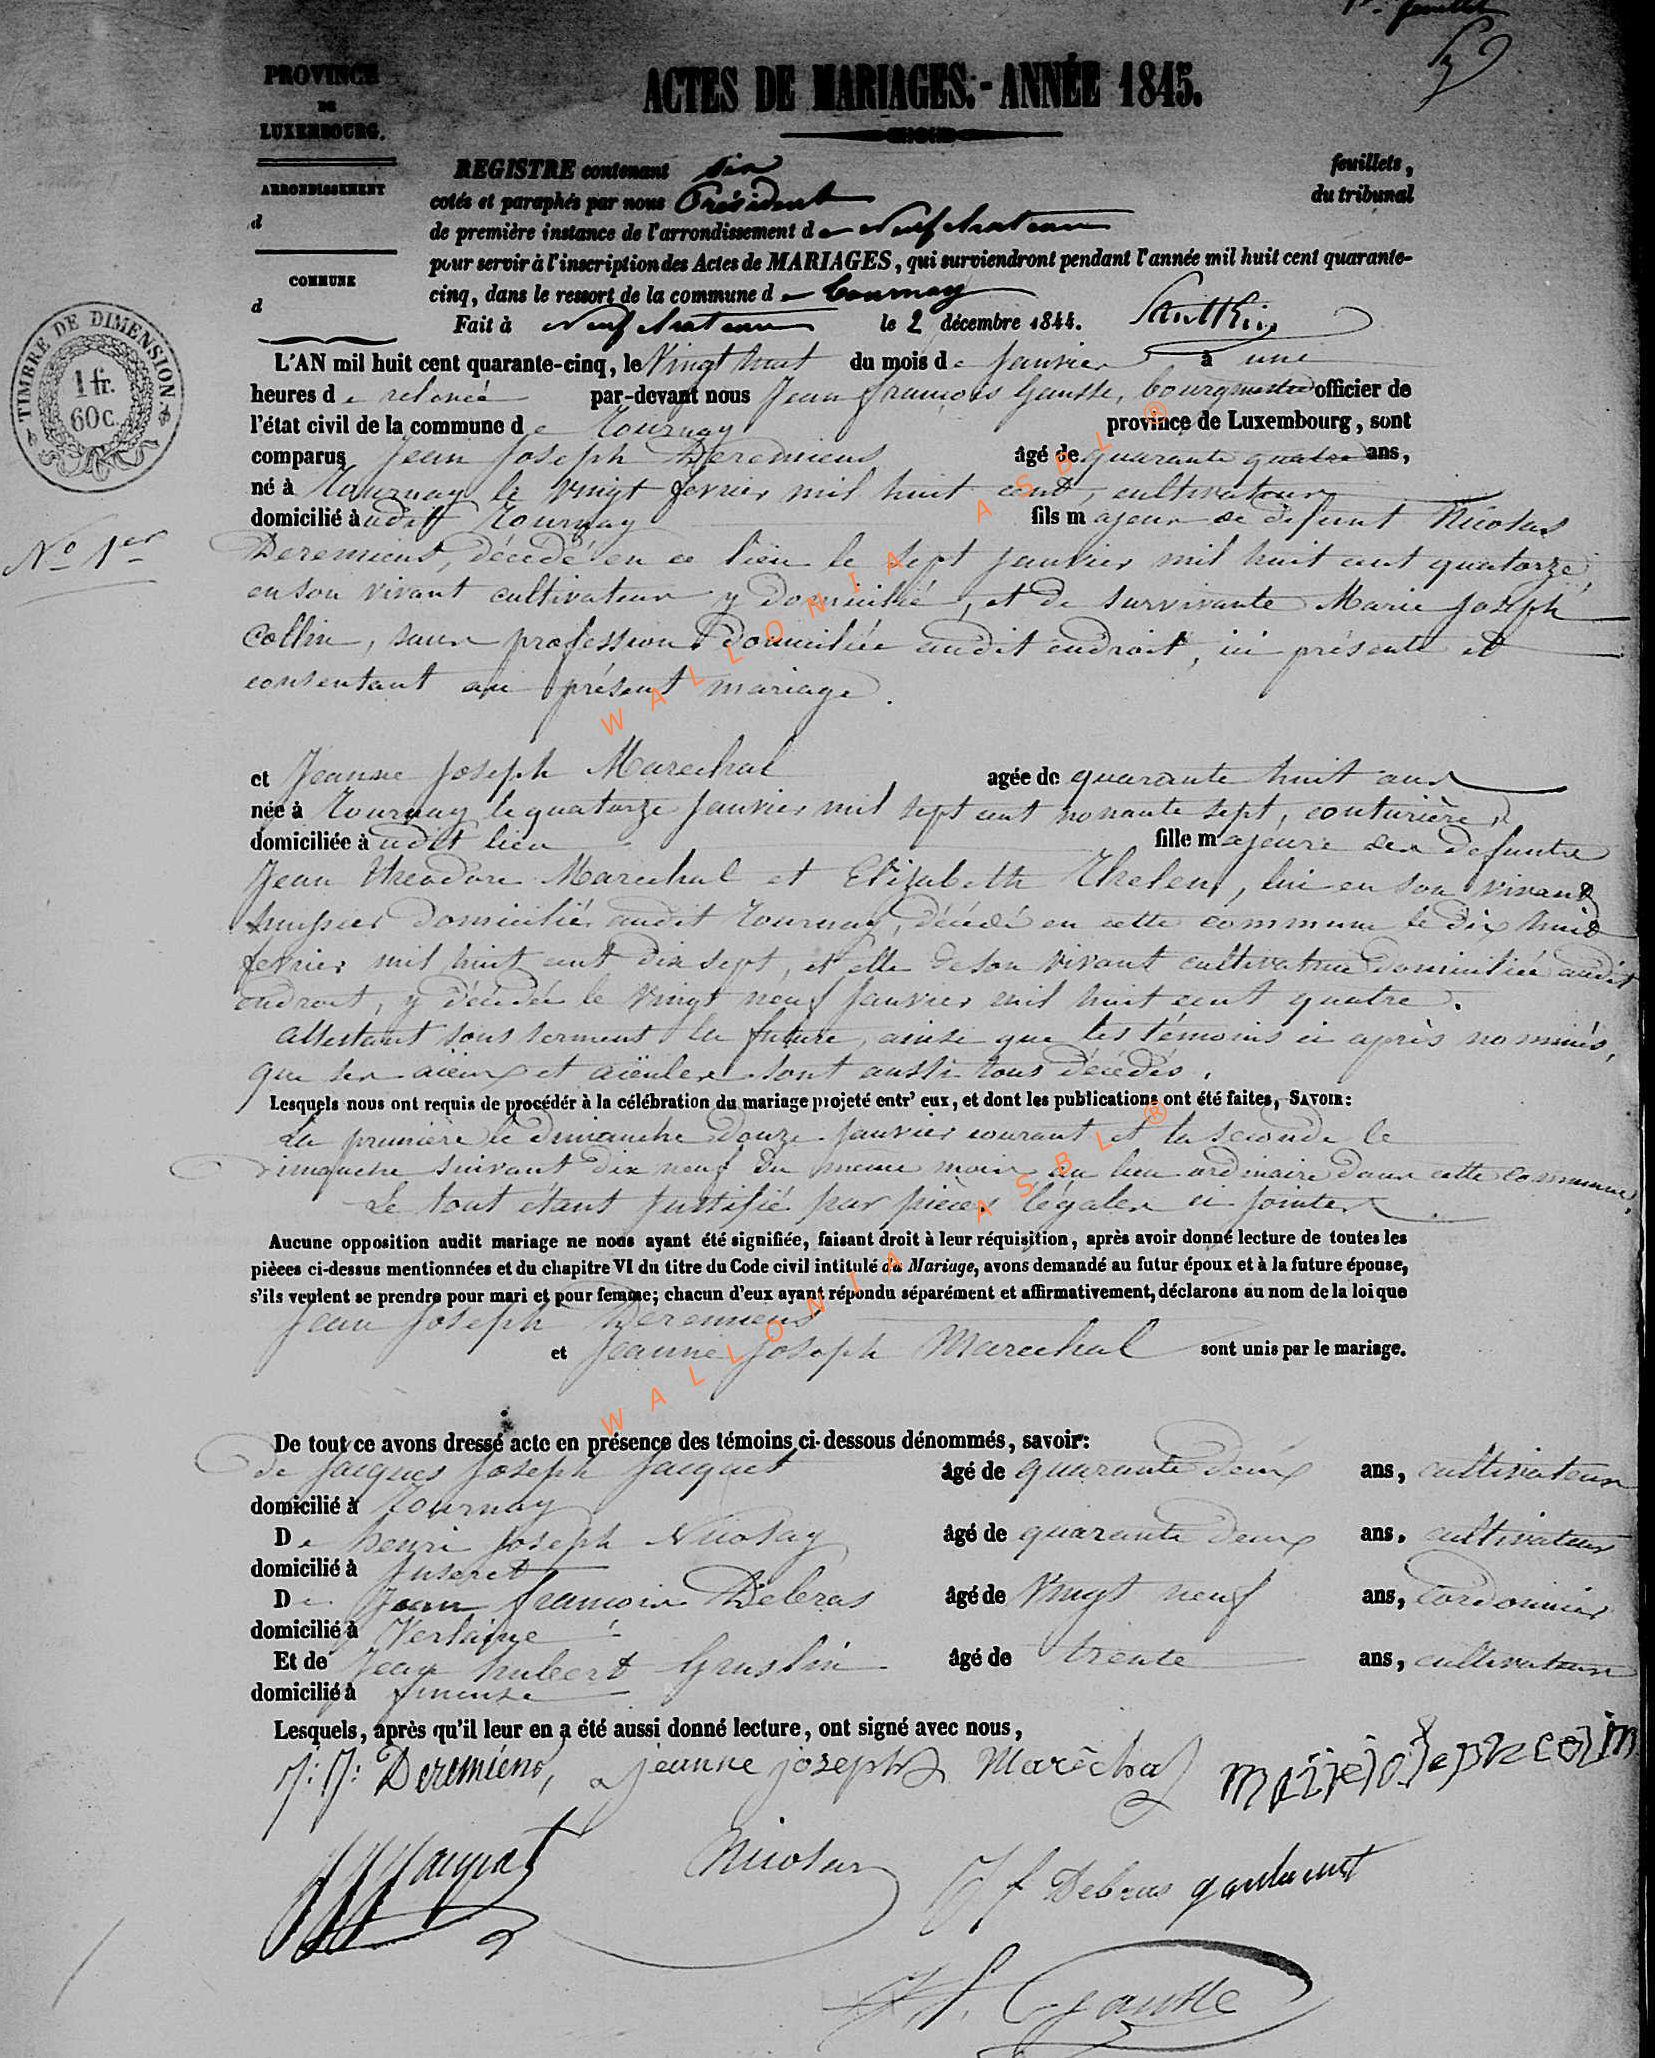 1er feuillet
PROVINCE
DE
LUXEMBOURG.
ACTES DE MARIAGES.- ANNÉE 1845.
ARRONDISSEMENT
d
COMMUNE
d
REGISTRE contenant six feuillets,
cotés et paraphés par nous Président du tribunal
de première instance de l'arrondissement de Neufchateau
pour servir à l'inscription des Actes de MARIAGES, qui surviendront pendant l'année mil huit cent quarante-
cinq, dans le ressort de la commune de Tournay
Fait à Neufchateau le 2 décembre 1844.
TIMBRE DE DIMENSION
1 fr.
60 c.
No 1er
L'AN mil huit cent quarante-cinq, le Vingt huit du mois de Janvier à une
heures de relevée par-devant nous Jean françois Gausse, bourgmestre officier de
l'état civil de la commune de Tournay province de Luxembourg, sont
comparus Jean Joseph Deremiens âgé de quarante quatre ans,
né à Tournay le vingt fevrier mil huit cent, cultivateur
domicilié audit Tournay fils majeur de defunt Nicolas
Deremiens, décédé en ce lieu le sept janvier mil huit cent quatorze,
en son vivant cultivateur y domicilié, et de survivante Marie Joseph
Collin, sans profession domiciliée audit endroit, ici présente et
consentant au présent mariage.
et Jeanne Joseph Marechal agée de quarante huit ans
née à Tournay le quatorze janvier mil sept cent nonante sept, couturière,
domiciliée audit lieu fille majeure des defunts
Jean Theodore Marechal et Elizabeth Thelen, lui en son vivant
huissier domicilié audit Tournay, décédé en cette commune le dix huit
fevrier mil huit cent dix sept, et elle de son vivant cultivatrice domiciliée audit
endroit, y décédée le vingt neuf Janvier mil huit cent quatre.
attestant sous serment la future, ainsi que les témoins ci après nommés,
que ses aïeux et aïeules sont aussi tous décédés.
Lesquels nous ont requis de procédér à la célébration du mariage projeté entr' eux, et dont les publications ont été faites, SAVOIR:
La première le dimanche douze janvier courant et la seconde le
dimanche suivant dix neuf du meme mois au lieu ordinaire dans cette commune,
Le tout étant justifié par pièces légales ci jointes.
Aucune opposition audit mariage ne nous ayant été signifiée, faisant droit à leur réquisition, après avoir donné lecture de toutes les
pièces ci-dessus mentionnées et du chapitre VI du titre du Code civil intitulé du Mariage, avons demandé au futur époux et à la future épouse,
s'ils veulent se prendre pour mari et pour femme; chacun d'eux ayant répondu séparément et affirmativement, déclarons au nom de la loi que
Jean Joseph Deremiens
et Jeanne Joseph Marechal sont unis par le mariage.
De tout ce avons dressé acte en présence des témoins ci-dessous dénommés, savoir:
de Jacques Joseph Jacquet âgé de quarante deux ans, cultivateur
domicilié à Tournay
De henri Joseph Nicolay âgé de quarante deux ans, cultivateur
domicilié à Juseret
De Jean francois Debras âgé de vingt neuf ans, cordonnier
domicilié à Verlaine
Et de Jean hubert Guslin âgé de trente ans, cultivateur
domicilié à
Lesquels, après qu'il leur en a été aussi donné lecture, ont signé avec nous,
J: J: Deremiens, jeanne joseph Maréchal marie joseph colin
JJ Jacquet Nicolay J f Debras
J. f. Gausse
WALLONIA ASBL ®
WALLONIA ASBL ®